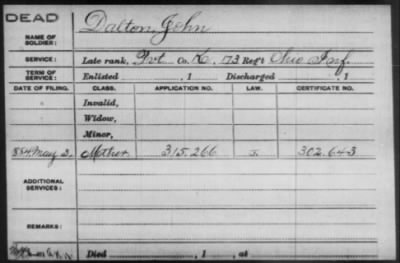 DEAD
NAME OF SOLDIER: Dalton, John
SERVICE: Late rank, Pvt. Co. K, 173 Reg't Ohio Inf.
TERM OF SERVICE: Enlisted , 1 Discharged , 1
DATE OF FILING. CLASS. APPLICATION NO. LAW. CERTIFICATE NO.
Invalid,
Widow,
Minor,
884 May 2. Mother 315.266 J. 302.643
ADDITIONAL SERVICES:
REMARKS:
Died , 1 , at